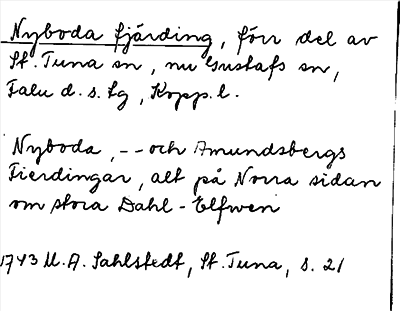 Nyboda fjärding, förr del av
St. Tuna sn, nu Gustafs sn,
Falu d. s. lg, Kopp. l.
Nyboda, -- och Amundsbergs
Fierdingar, alt på Norra sidan
om stora Dahl-Elfwen
1743 M. A. Sahlstedt, St. Tuna, s. 21